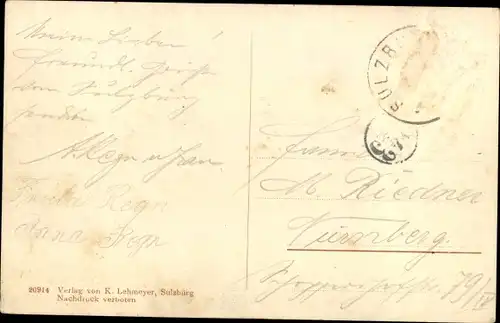 Meine Lieben!
freundl. Grüße
von Sulzburg
sendet
A. Regn u Frau
Frieda Regn
Anna Regn
SULZB
M. Riedner
Nürnberg.
79/IV
20914 Verlag von K. Lehmeyer, Sulzbürg
Nachdruck verboten